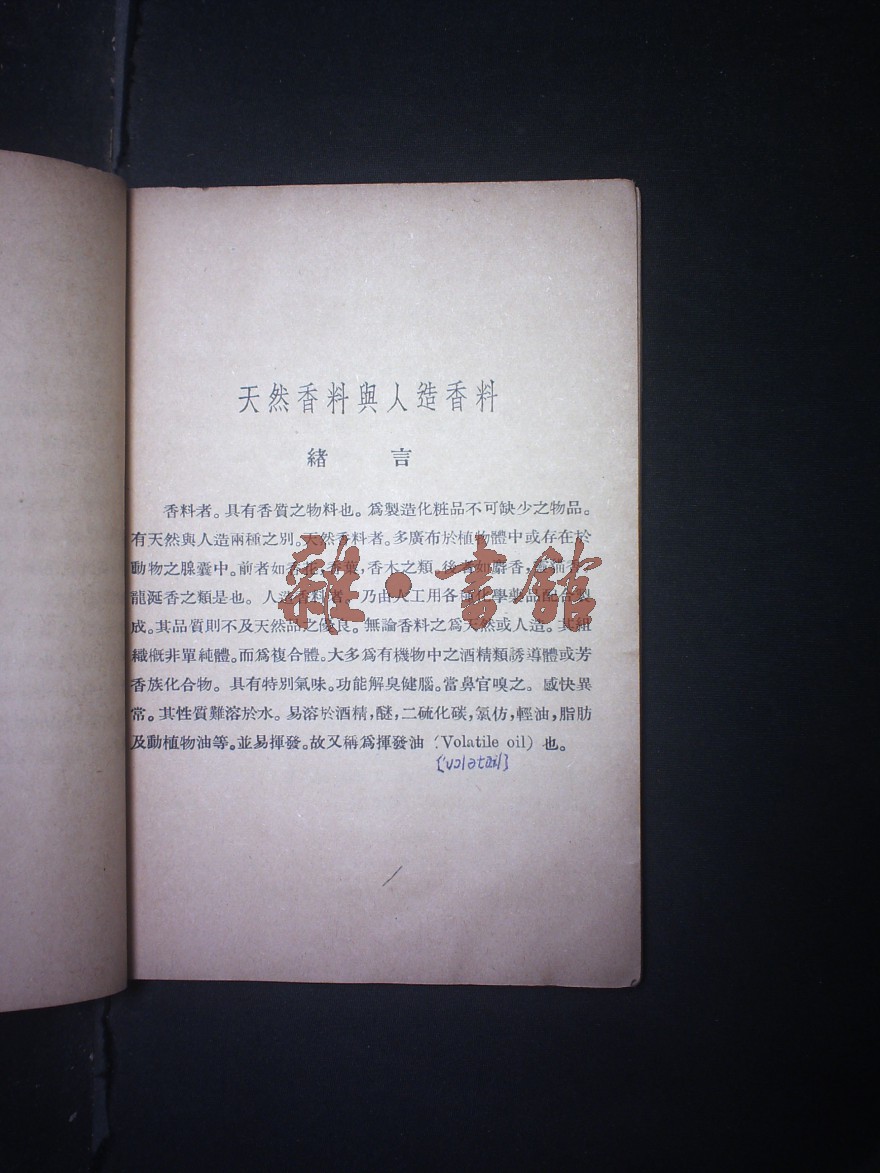 天然香料與人造香料
緒言
香料者。具有香質之物料也。爲製造化粧品不可缺少之物品。
有天然與人造兩種之別。天然香料者。多廣布於植物體中或存在於
動物之腺囊中。前者如香花,香葉,香木之類。後者如麝香,靈猫香,
龍涎香之類是也。人造香料者。乃由人工用各種化學藥品配合製
成。其品質則不及天然品之優良。無論香料之爲天然或人造。其組
織概非單純體。而爲複合體。大多爲有機物中之酒精類誘導體或芳
香族化合物。具有特別氣味。功能解臭健腦。當鼻官嗅之。感快異
常。其性質難溶於水。易溶於酒精,醚,二硫化碳,氯仿,輕油,脂肪
及動植物油等。並易揮發。故又稱爲揮發油(Volatile oil)也。
雜·書館